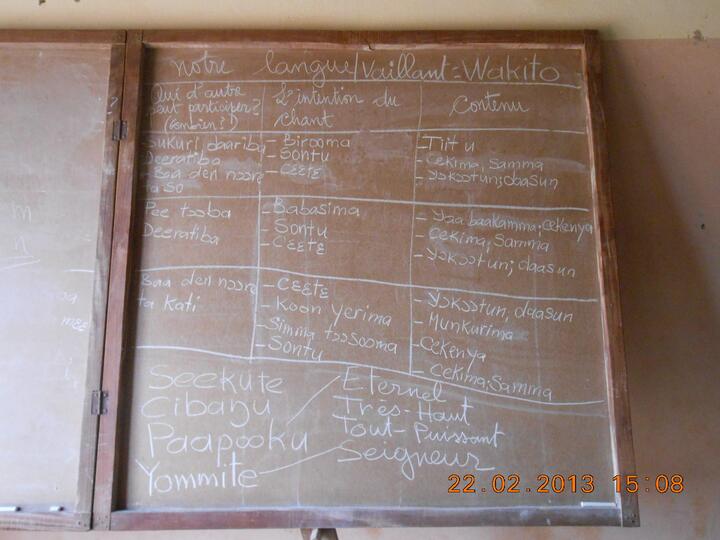 notre langue/Vaillant = Wakito
Qui d'autre peut participer? (combien?)
L'intention du chant
Contenu
Sukuri daariba
Deeratiba
- Baa den nɔɔrɛ ta so
- Birooma
- Sontu
- Cɛɛtɛ
- Tiitu
- Cekima, Samma
- Yɔkɔɔtun; daasun
Pee tɔɔba
Deeratiba
- Babasima
- Sontu
- Cɛɛtɛ
- Yɔɔ baakamma; cekenya
- Cekima; Samma
- Yɔkɔɔtun; daasun
Baa den nɔɔrɛ ta kati
- Cɛɛtɛ
- Koon yerima
- Simma tɔɔsooma
- Sontu
- Yɔkɔɔtun, daasun
- Munkurima
- Cekenya
- Cekima; Samma
Seekute
Eternel
Très-Haut
Paapooku
Tout-Puissant
Yommite
Seigneur
m
n
22.02.2013 15:08